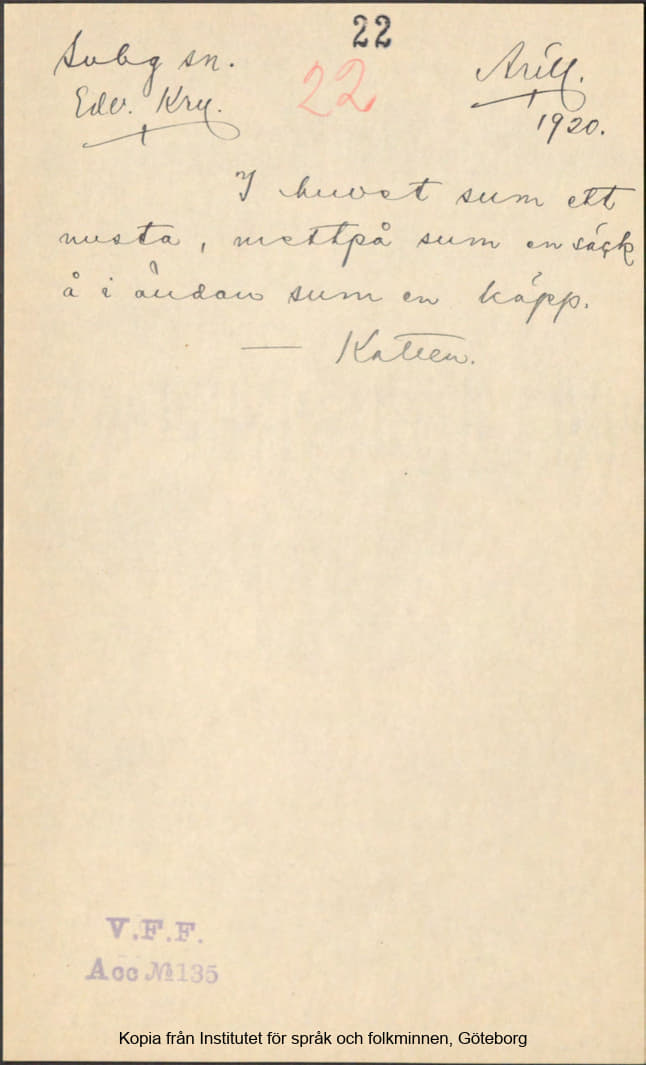 22
Svbg sn.
Edv. Kru.
22
Arill.
1920.
I huvet sum ett
nusta, mettpå sum en säçk
å i ändan sum en käpp.
— Katten.
V.F.F.
Acc № 135
Kopia från Institutet för språk och folkminnen, Göteborg